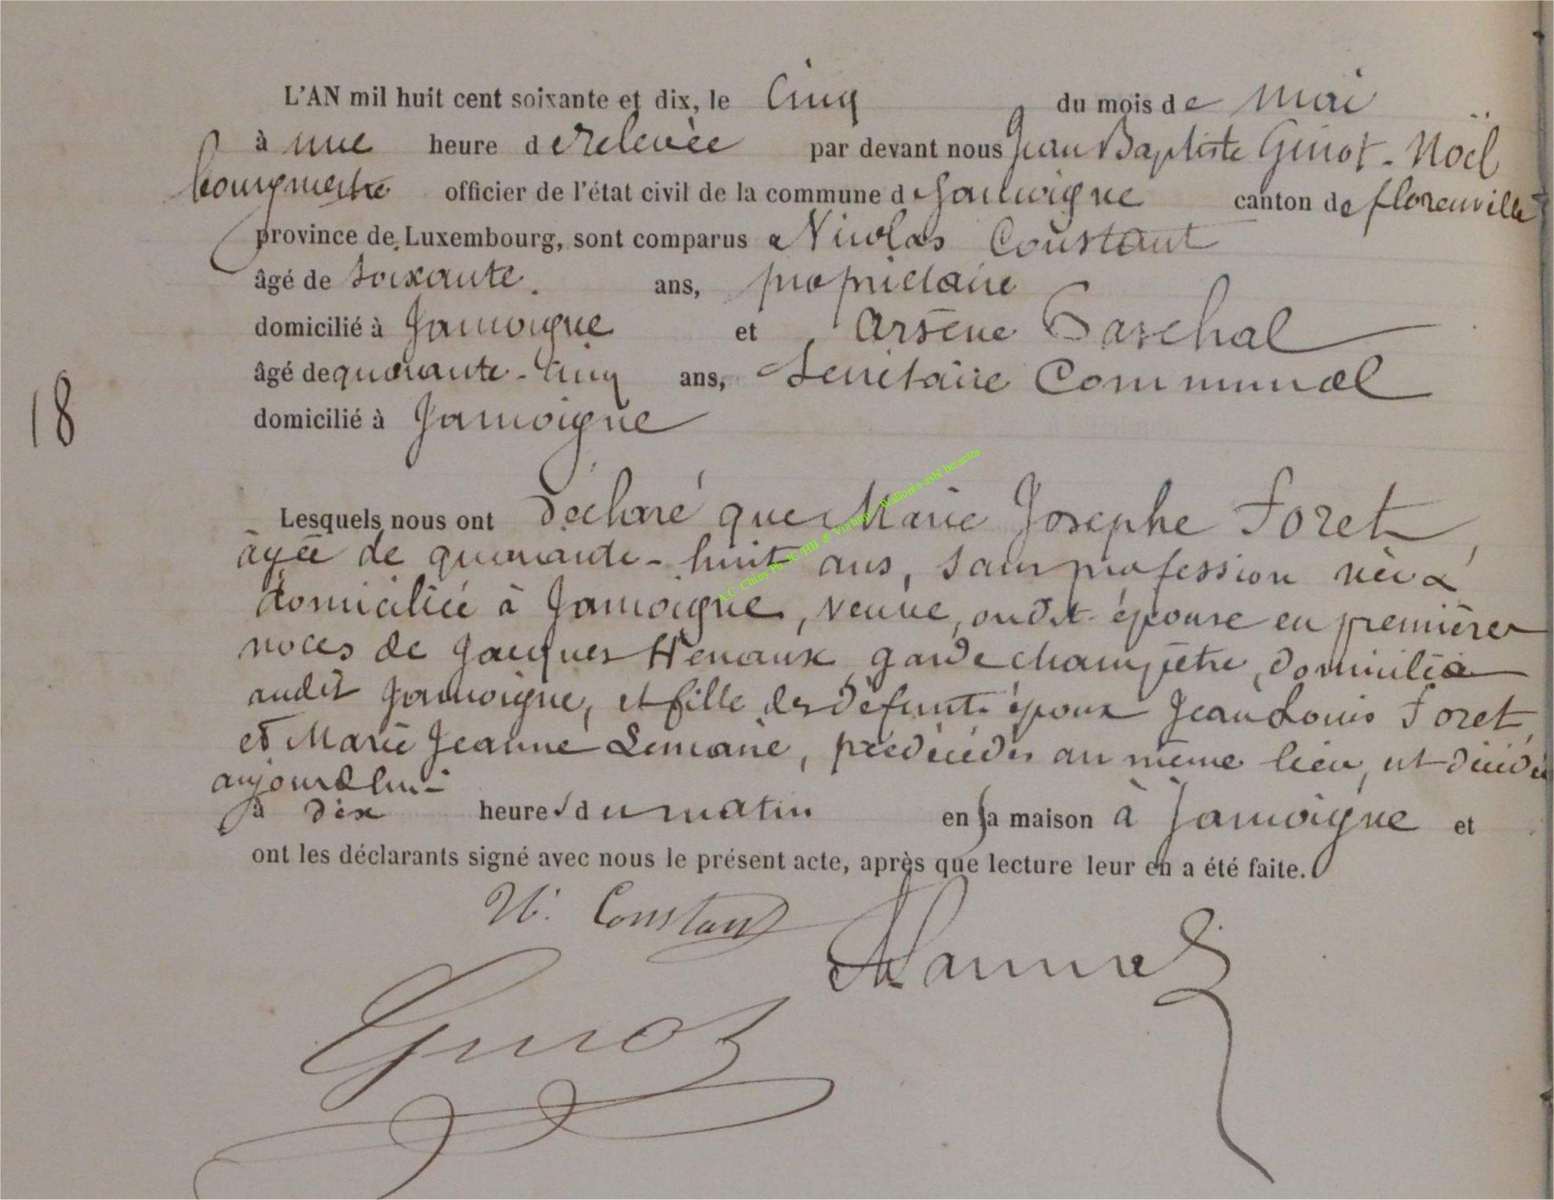 L'AN mil huit cent soixante et dix, le Cinq du mois de Mai
à une heure de relevée par devant nous Jean Baptiste Guiot-Noël
bourgmestre officier de l'état civil de la commune de Jamoigne canton de florenville
province de Luxembourg, sont comparus Nicolas Constant
âgé de soixante. ans, propriétaire
domicilié à Jamoigne et Arsène Paschal
âgé de quarante-cinq ans, Secrétaire Communal
domicilié à Jamoigne
18
Lesquels nous ont déclaré que Marie Josephe Foret,
âgée de quarante-huit ans, sans profession née &
domiciliée à Jamoigne, veuve, ondit épouse en premières
noces de Jacques Henaux garde champêtre, domicilié
audit Jamoigne, et fille des défunts époux Jean Louis Foret,
et Marie Jeanne Lemaire, prédécédés au même lieu, est décédée
aujourdhui
à dix heures du matin en sa maison à Jamoigne et
ont les déclarants signé avec nous le présent acte, après que lecture leur en a été faite.
N. Constant
Guiot